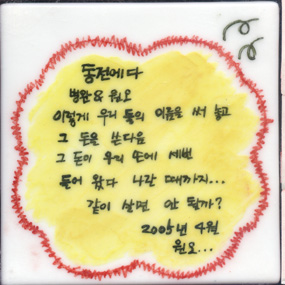 동전에다
병환 & 원오
이렇게 우리 둘의 이름을 써 놓고
그 돈을 쓴다음
그 돈이 우리 손에 세번
들어 왔다 나갈 때까지...
같이 살면 안 될까?
2005년 4월
원오...